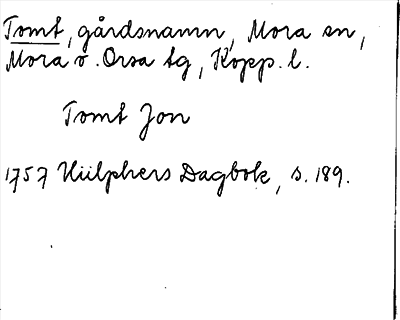 Tomt, gårdsnamn, Mora sn,
Mora o. Orsa tg, Kopp. l.
Tomt Jon
1757 Hülphers Dagbok, s. 189.